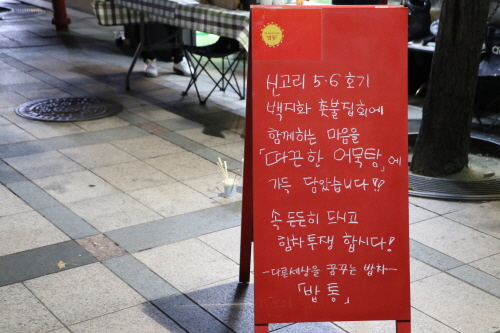 밥통
신고리 5·6 호기
백지화 촛불집회에
함께하는 마음을
「따끈한 어묵탕」에
가득 담았습니다!!
속 든든히 드시고
힘차투쟁 합시다!
-다른세상을 꿈꾸는 밥차-
「밥통」